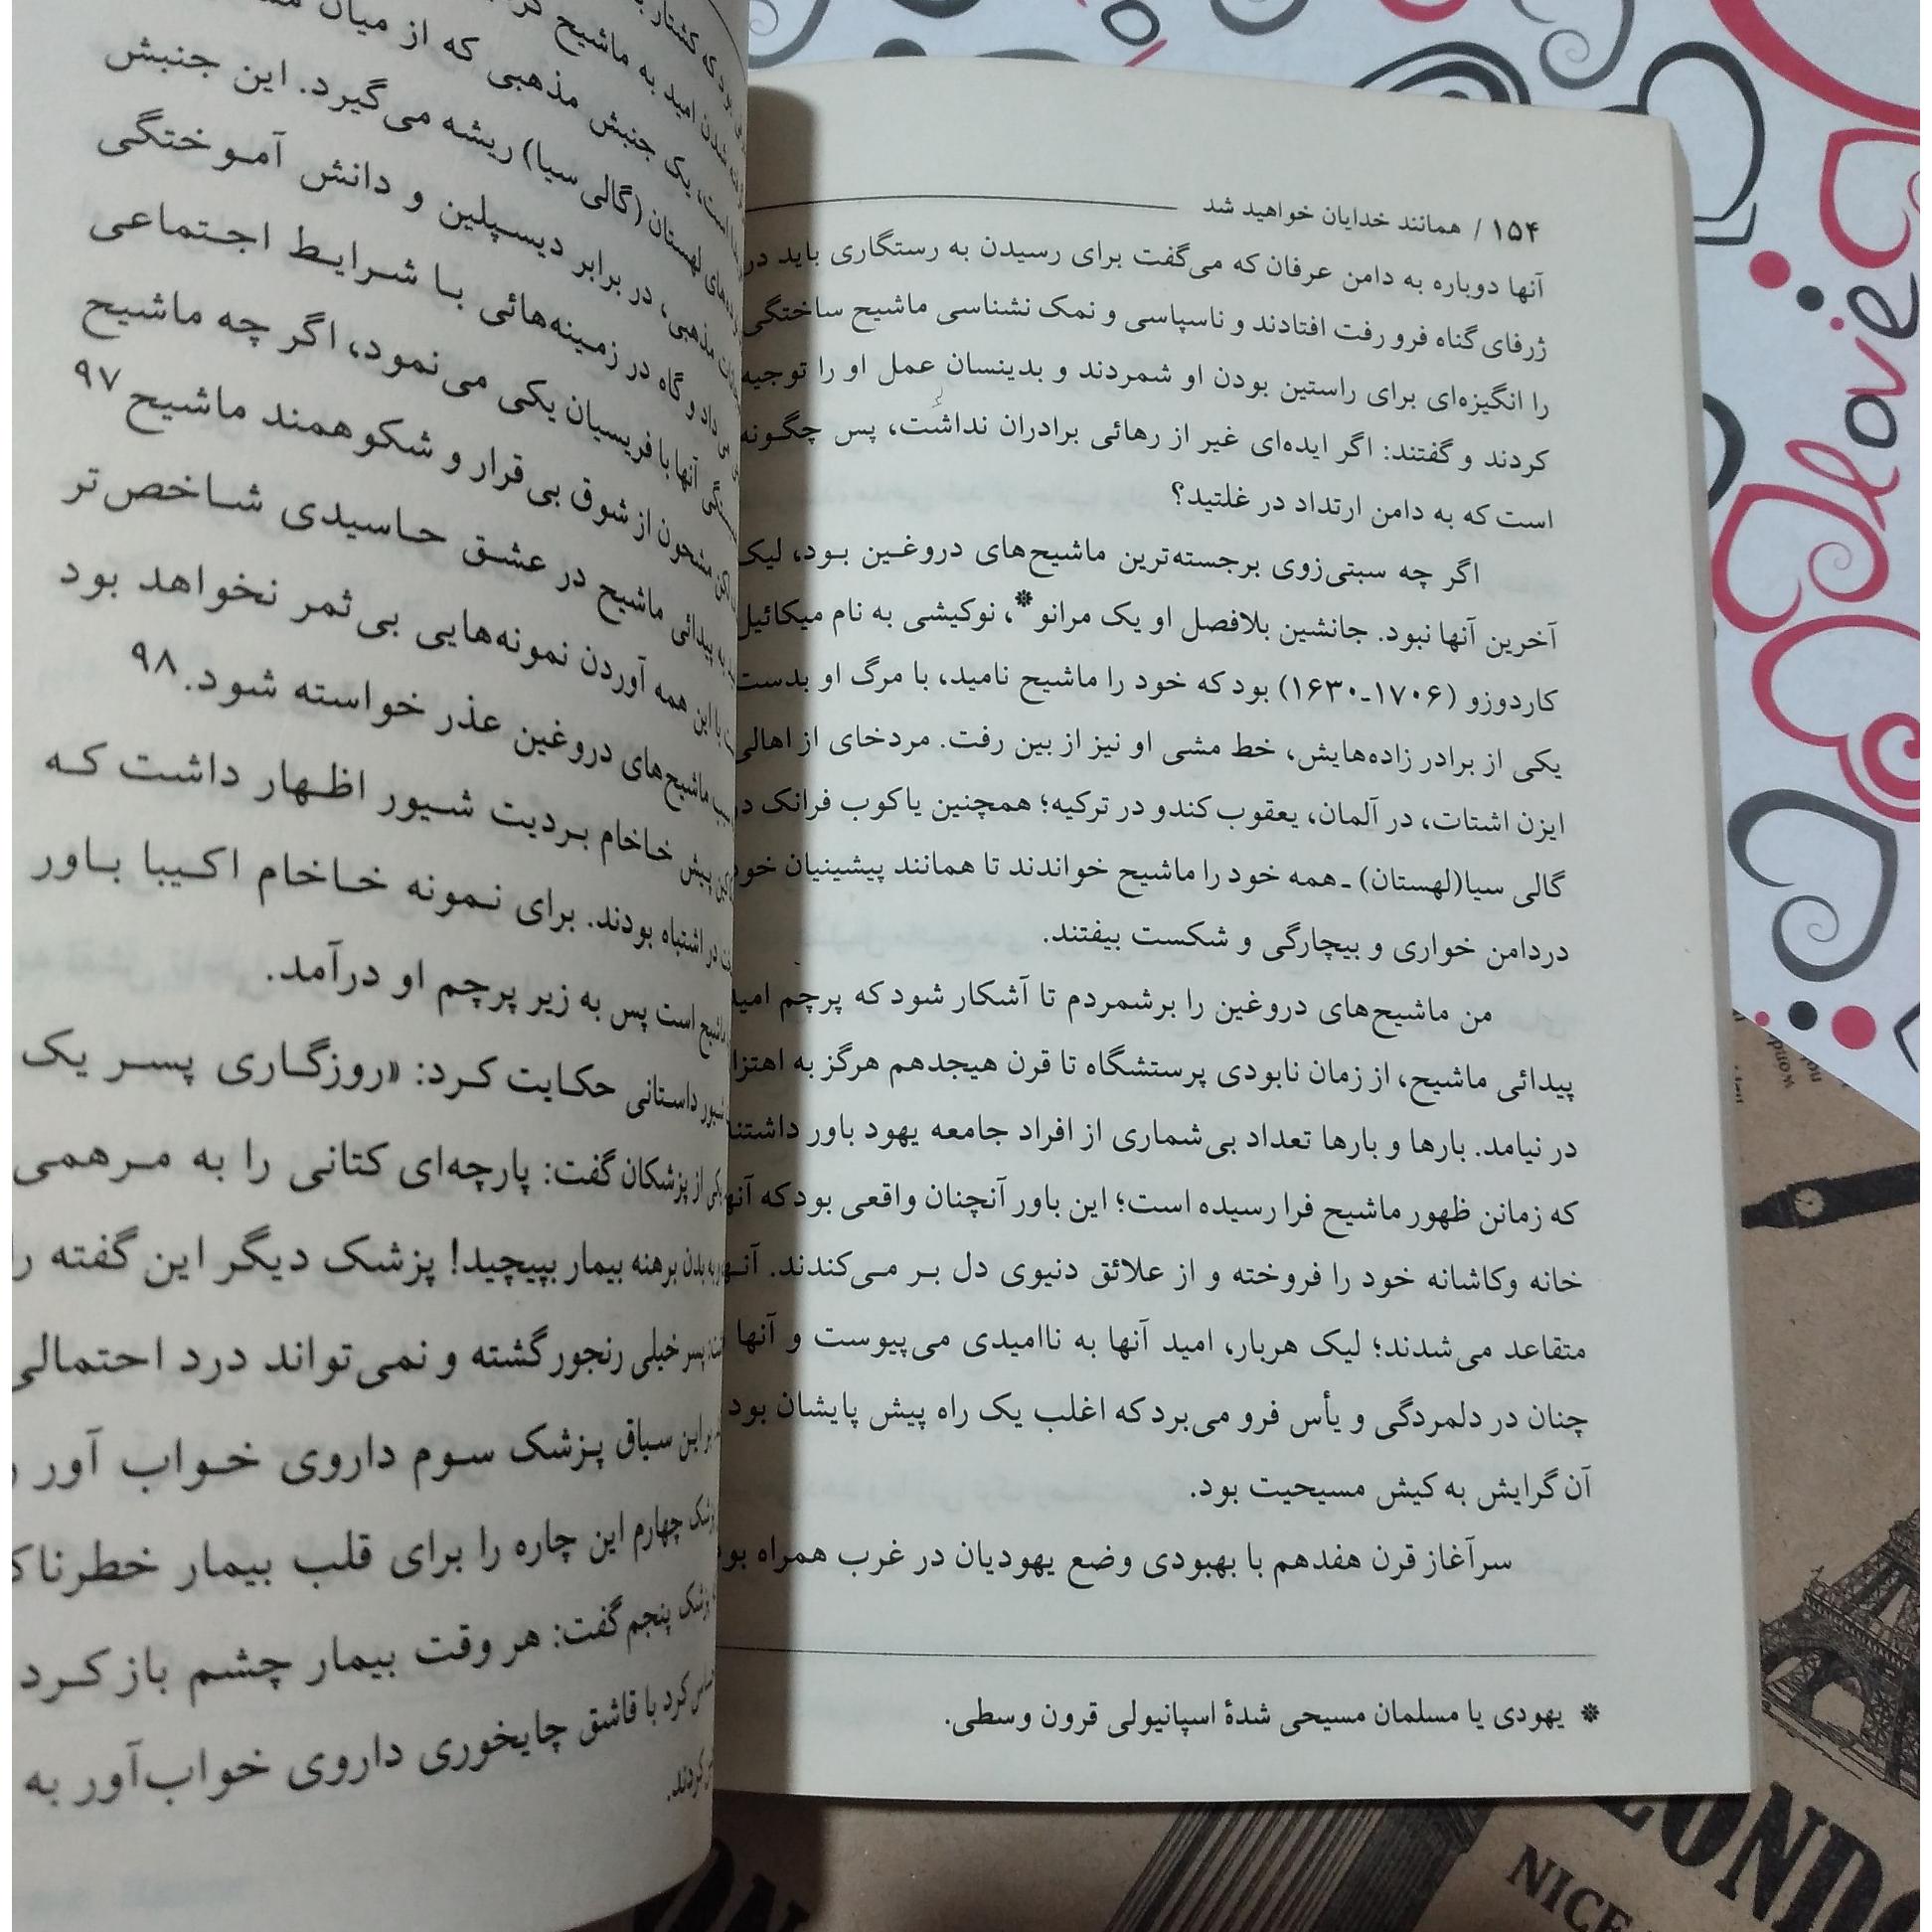 ۱۵۴ / همانند خدایان خواهید شد
آنها دوباره به دامن عرفان که می‌گفت برای رسیدن به رستگاری باید در
ژرفای گناه فرو رفت افتادند و ناسپاسی و نمک نشناسی ماشیح ساختگی
را انگیزه‌ای برای راستین بودن او شمردند و بدینسان عمل او را توجیه
کردند و گفتند: اگر ایده‌ای غیر از رهائی برادران نداشت، پس چگونه
است که به دامن ارتداد در غلتید؟
اگر چه سبتی‌زوی برجسته‌ترین ماشیح‌های دروغین بود، لیک
آخرین آنها نبود. جانشین بلافصل او یک مرانو*، نوکیشی به نام میکائیل
کاردوزو (۱۷۰۶-۱۶۳۰) بود که خود را ماشیح نامید، با مرگ او بدست
یکی از برادر زاده‌هایش، خط مشی او نیز از بین رفت. مردخای از اهالی
ایزن اشتات، در آلمان، یعقوب کندو در ترکیه؛ همچنین یاکوب فرانک در
گالی سیا(لهستان) - همه خود را ماشیح خواندند تا همانند پیشینیان خود
دردامن خواری و بیچارگی و شکست بیفتند.
من ماشیح‌های دروغین را برشمردم تا آشکار شود که پرچم امید
پیدائی ماشیح، از زمان نابودی پرستشگاه تا قرن هیجدهم هرگز به اهتزا
در نیامد. بارها و بارها تعداد بی‌شماری از افراد جامعه یهود باور داشتند
که زمانن ظهور ماشیح فرا رسیده است؛ این باور آنچنان واقعی بود که آنها
خانه وکاشانه خود را فروخته و از علائق دنیوی دل بر می‌کندند. آنها
متقاعد می‌شدند؛ لیک هربار، امید آنها به ناامیدی می‌پیوست و آنها
چنان در دلمردگی و یأس فرو می‌برد که اغلب یک راه پیش پایشان بود
آن گرایش به کیش مسیحیت بود.
سرآغاز قرن هفدهم با بهبودی وضع یهودیان در غرب همراه بود
* یهودی یا مسلمان مسیحی شدهٔ اسپانیولی قرون وسطی.
بود که کشتار
شدن امید به ماشیح
است، یک جنبش مذهبی که از میان
لهستان (گالی سیا) ریشه می‌گیرد. این جنبش
مذهبی، در برابر دیسپلین و دانش آموختگی
داد و گاه در زمینه‌هائی با شرایط اجتماعی
آنها با فریسیان یکی می‌نمود، اگر چه ماشیح
مشحون از شوق بی‌قرار و شکوهمند ماشیح ۹۷
به پیدائی ماشیح در عشق حاسیدی شاخص‌تر
با این همه آوردن نمونه‌هایی بی‌ثمر نخواهد بود
ماشیح‌های دروغین عذر خواسته شود. ۹۸
پیش خاخام بردیت شیور اظهار داشت که
در اشتباه بودند. برای نمونه خاخام اکیبا باور
ماشیح است پس به زیر پرچم او درآمد.
شیور داستانی حکایت کرد: «روزگاری پسر یک
یکی از پزشکان گفت: پارچه‌ای کتانی را به مرهمی
به بدن برهنه بیمار بپیچید! پزشک دیگر این گفته
پسر خیلی رنجور گشته و نمی‌تواند درد احتمالی
بر این سیاق پزشک سوم داروی خواب آور
پزشک چهارم این چاره را برای قلب بیمار خطرناک
پزشک پنجم گفت: هر وقت بیمار چشم باز کرد
کرد با قاشق چایخوری داروی خواب‌آور به
کردند.
love
LONDO
NICE